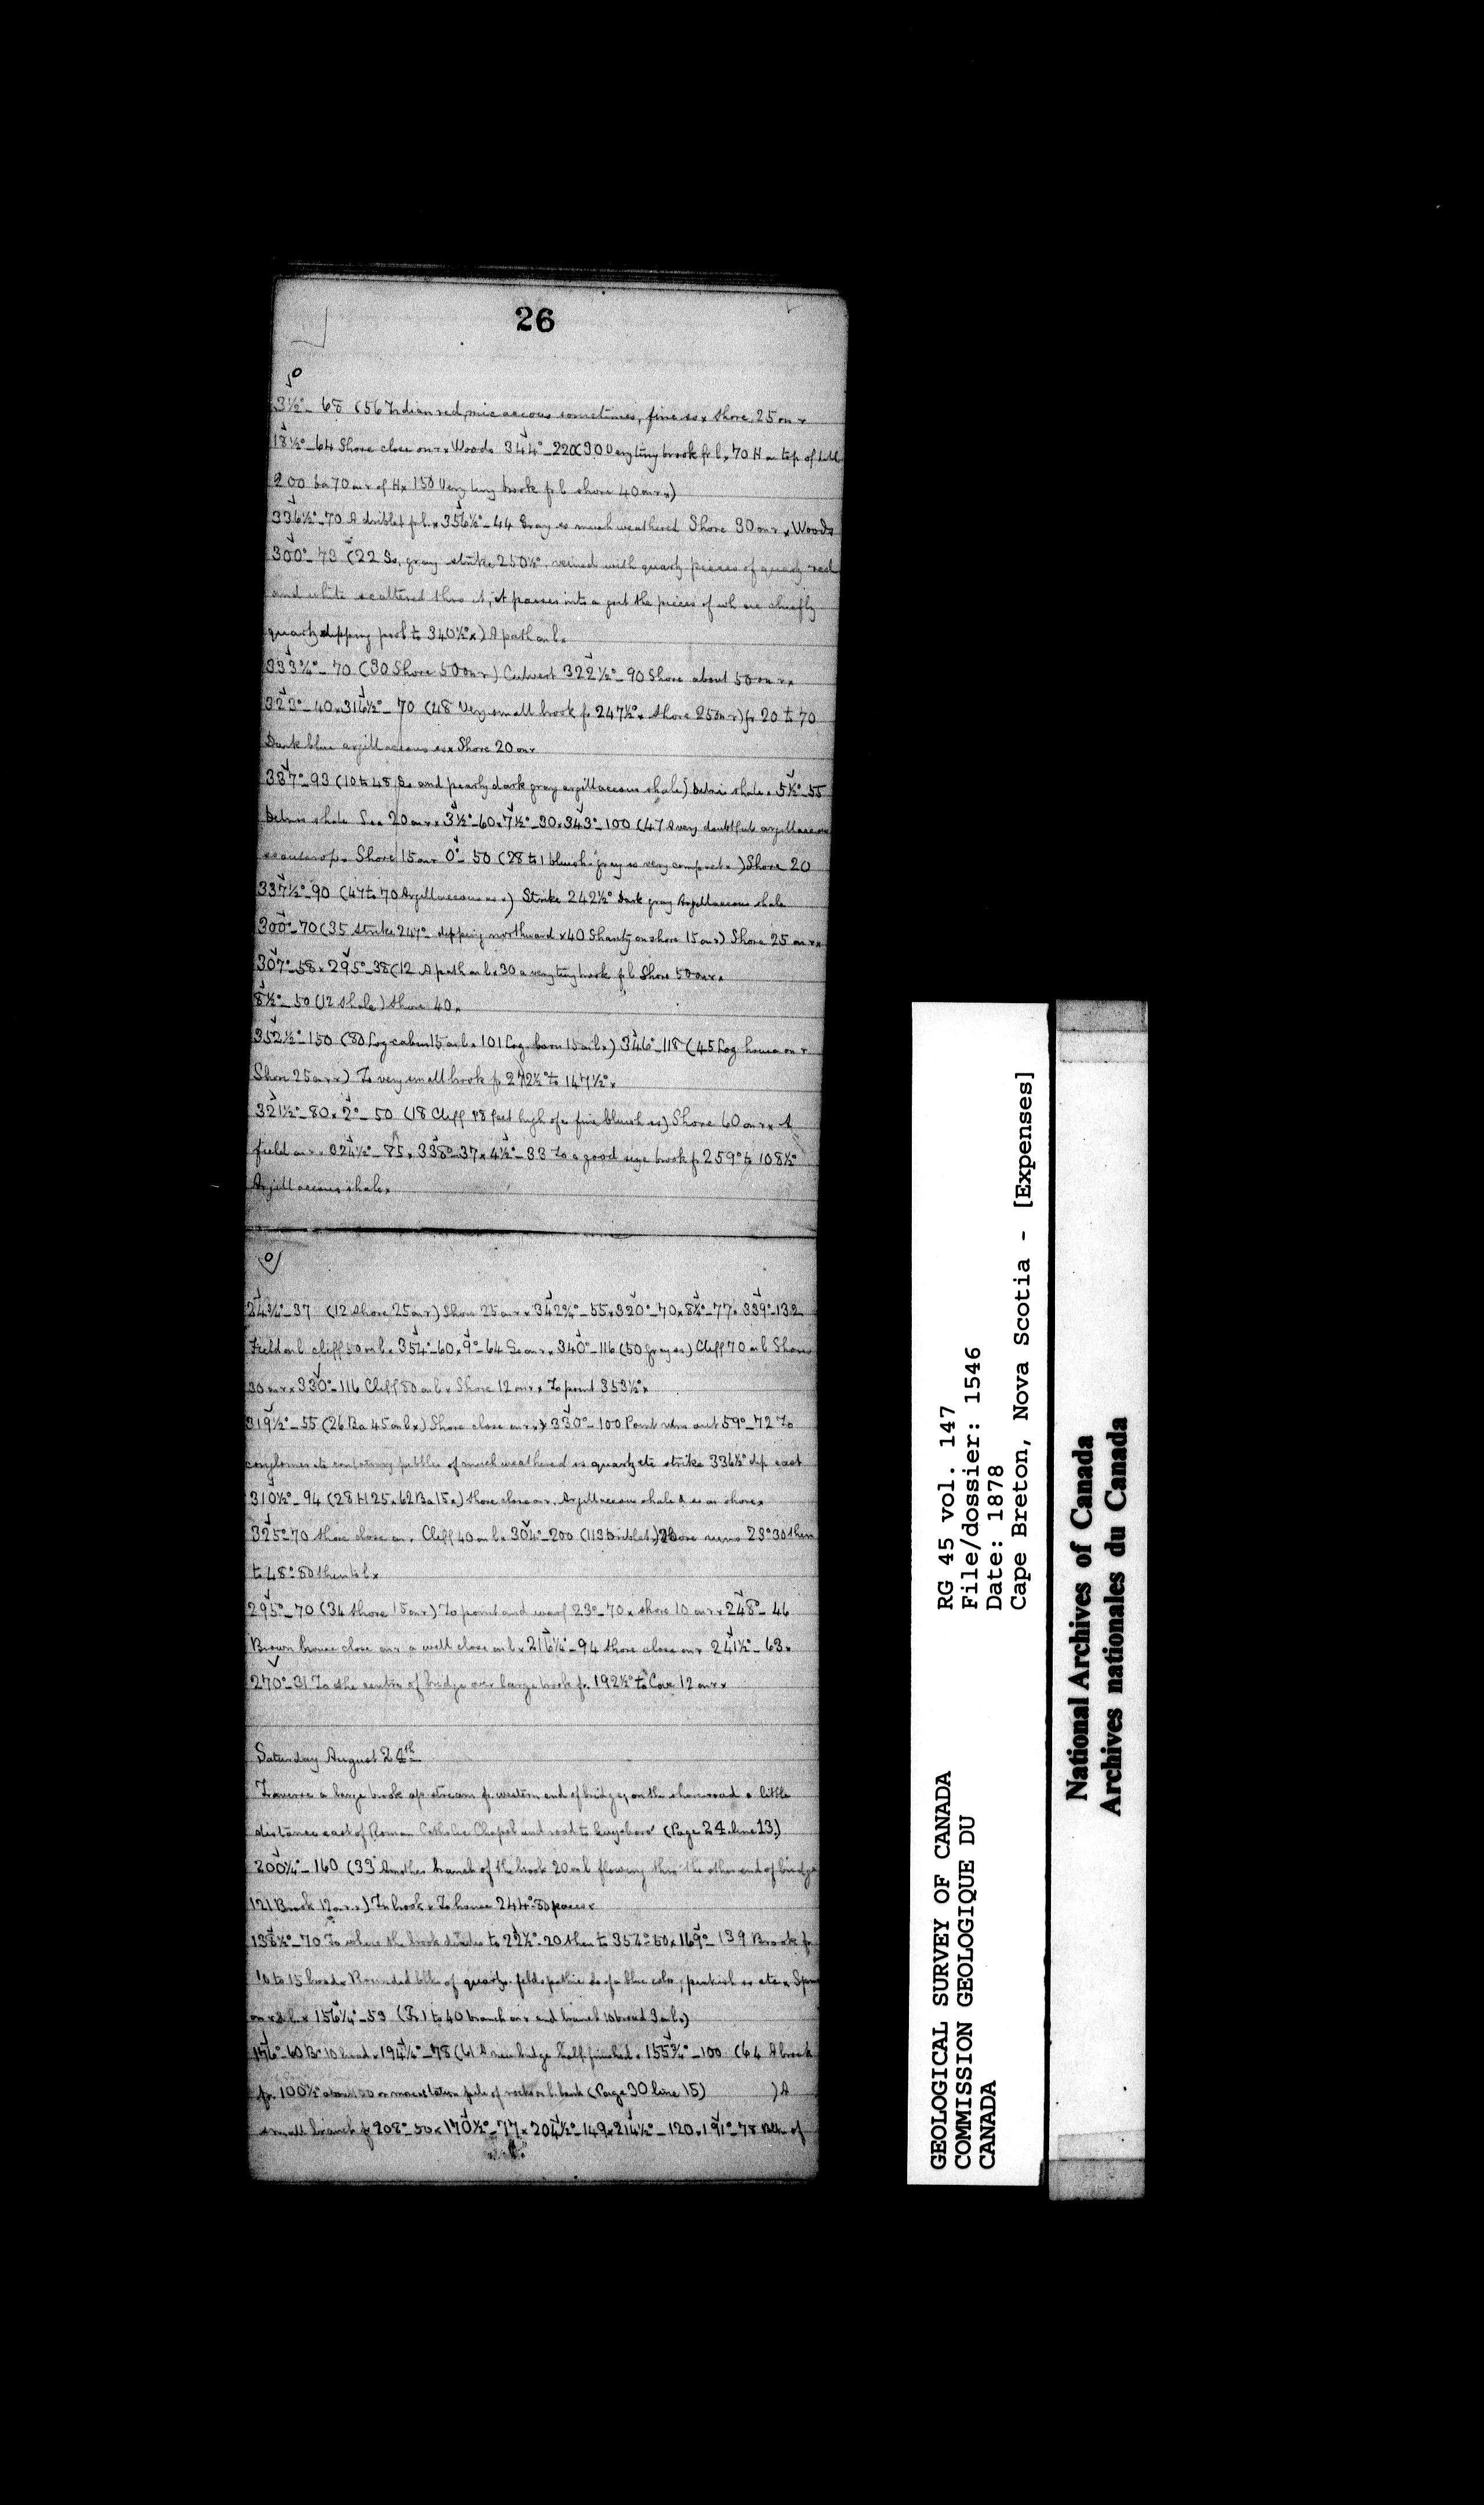 26
3½°_ 68 (56 Indian red, micaceous sometimes, fine ss x Shore 25 on r
18½°_64 Shore close on r x Woods 344°_220(30 Very tiny brook fr l, 70 H on top of hill
200 ba 70 on r of H x 150 Very tiny brook fr l shore 40 on r x)
336½°_70 A driblet fr l x 356½°_44 Gray ss much weathered Shore 30 on r x Woods
300°_73 (22 Ss, gray strike 250½°, veined with quartz pieces of quartz red
and white scattered thro it, it passes into a grit the pieces of wh are chiefly
quartz dipping prob to 340½° x) A path on l x
333¾°_ 70 (30 Shore 50 on r) Culvert 322½°_90 Shore about 50 on r x
323°_40 x 316½°_ 70 (48 Very small brook fr 247½° x Shore 25 on r) fr 20 to 70
Dark blue argillaceous ss x Shore 20 on r
337°_93 (10 to 48 Ss and pearly dark gray argillaceous shale) Debris shale x 5½°_55
Debris shale Sea 20 on r x 3½°_60 x 7½°_30 x 343°_100 (47 A very doubtful argillaceous
ss outcrop x Shore 15 on r 0°_ 50 (28 to 1 bluish gray ss very compact x ) Shore 20
337½°_90 (47 to 70 Argillaceous ss x) Strike 242½° Dark gray Argillaceous shale
300°_70 (35 Strike 247° dipping northward x 40 Shanty on shore 15 on r) Shore 25 on r x
307°_58 x 295°_38 (12 A path on l x 30 a very tiny brook fr l Shore 50 on r x
8½°_50 (12 shale) Shore 40 x
352½°_150 (80 Log cabin 15 on l x 101 Log barn 15 on l x) 346°_118 (45 Log house on r
Shore 25 on r x) To very small brook fr 272½° to 147½° x
321½°_80 x 2°_ 50 (18 Cliff 18 feet high of a fine bluish ss) Shore 60 on r x A
field on r x 324½°_85 x 338°_37 x 4½°_33 To a good size brook fr 259° to 108½°
Argillaceous shale x
24¾°_37 (12 Shore 25 on r) Shore 25 on r x 342¾°_55 x 320°_70 x 8½°_77 x 339°_132
Field on l cliff 50 on l x 354°_60 x 9°_64 Ss on r x 340°_116 (50 gray ss) Cliff 70 on l Shore
30 on r x 330°_116 Cliff 80 on l x Shore 12 on r x To point 353½° x
319½°_55 (26 Ba 45 on l x) Shore close on r x) 330°_100 Point runs out 59°_72 To
conglomerate containing pebbles of much weathered ss quartz etc strike 336½° dip east
310½°_94 (28 H 25 x 62 Ba 15 x) Shore close on r. Argillaceous shale & ss on shore x
325°_70 Shore close on r Cliff 40 on l x 304°_200 (113 Driblet x) Shore runs 23°30 then
to 48°_80 then to l x
295°_70 (34 Shore 15 on r) To point and wharf 23°_70 x shore 10 on r x 248°_46
Brown house close on r a well close on l x 216¼°_94 Shore close on r 241½°_63 x
270°_31 To the centre of bridge over large brook fr 192½° to Cove 12 on r x
Saturday August 24th
Traverse a large brook up stream fr western end of bridge, on the shore road a little
distance east of Roman Catholic Chapel and road to Guysboro' (Page 24. line 13.)
200¼°_160 (33 Another branch of the brook 20 on l flowing thro' the other end of bridge
121 Brook 12 on r x) In brook x To house 244°_80 paces x
138½°_70 To where the brook divides to 22½°_20 then to 354°_50 x 169°_139 Brook fr
10 to 15 broad x Rounded blks of quartz, feldspathic ss of a blue color, pinkish ss etc x
on r & l x 156¼°_53 (Fr 1 to 40 branch on r and branch 10 broad 3 on l x)
176°_60 Bk 10 broad x 194¼°_78 (61 A new bridge half finished x 155¾°_100 (64 A brook
fr 100½° above 20 or more station pile of rocks on l bank (Page 30 line 15) ) A
small branch fr 208°_50 x 170½°_77 x 204½°_149 x 214½°_120 x 191°_78 Blks of
GEOLOGICAL SURVEY OF CANADA
COMMISSION GEOLOGIQUE DU
CANADA
RG 45 vol. 147
File/dossier: 1546
Date: 1878
Cape Breton, Nova Scotia - [Expenses]
National Archives of Canada
Archives nationales du Canada